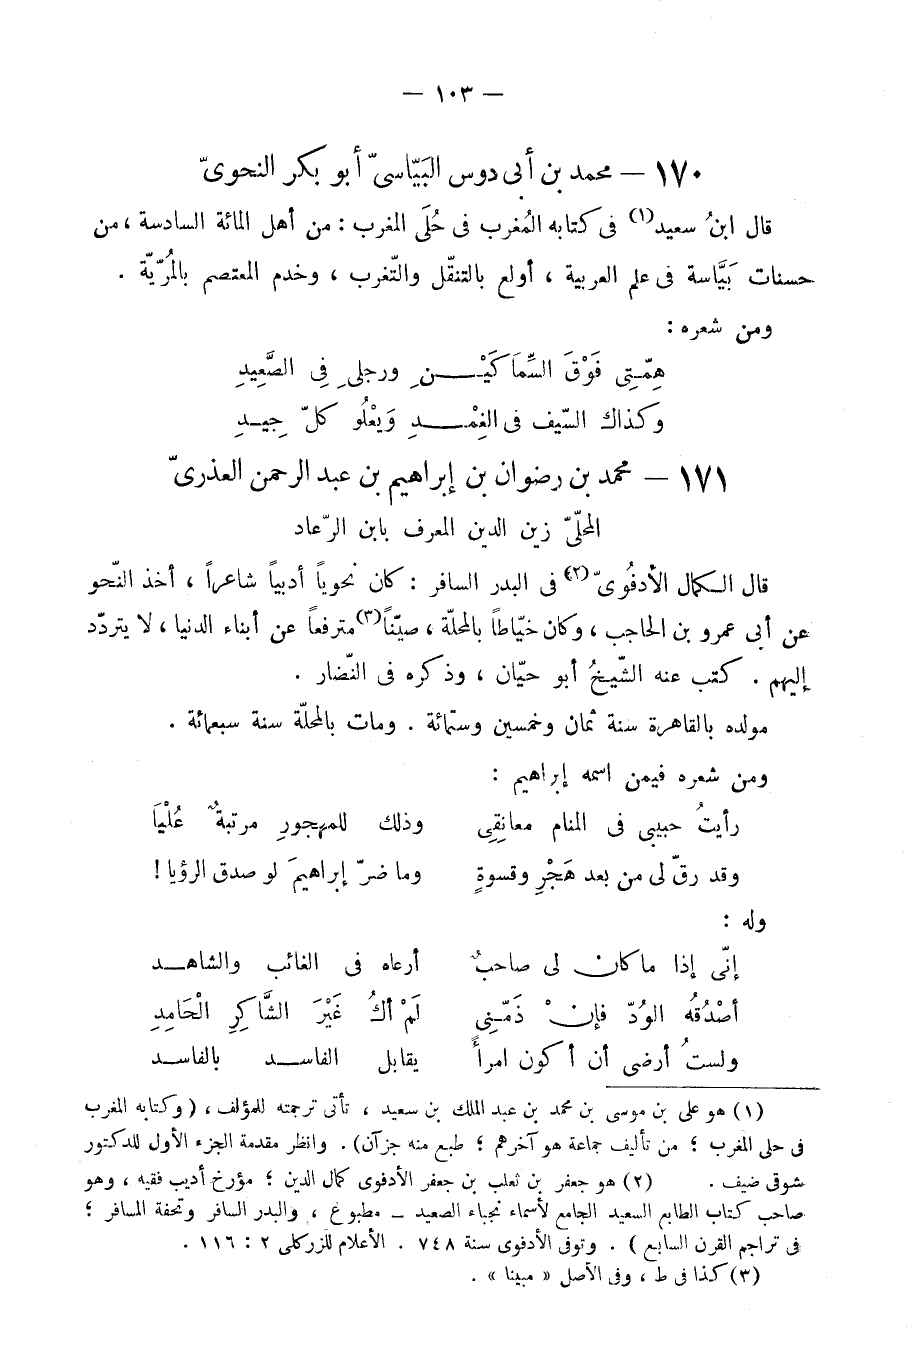 — ١٠٣ —
١٧٠ — محمد بن أبى دوس البَيّاسىّ أبو بكر النحوىّ
قال ابنُ سعيد(١) فى كتابه المُغرب فى حُلَى المغرب : من أهل المائة السادسة ، من
حسنات بَيَّاسة فى علم العربية ، أولع بالتنقّل والتّغرب ، وخدم المعتصم بالمُرّيّة .
ومن شعره :
هِمّتِى فَوْقَ السِّمَاكَيْـــنِ ورجلىِ فِى الصَّعِيدِ
وكذاك السّيف فى الغِمْـــدِ وَيَعْلُو كلّ جِيـدِ
١٧١ — محمد بن رضوان بن إبراهيم بن عبد الرحمن العذرىّ
المحلّىّ زين الدين المعرف بابن الرّعاد
قال الكمال الأدفُوىّ(٢) فى البدر السافر : كان نحوياً أديباً شاعراً ، أخذ النّحو
عن أبى عمرو بن الحاجب ، وكان خيّاطاً بالمحلّة ، صيّناً(٣) مترفعاً عن أبناء الدنيا ، لا يتردّد
إليهم . كتب عنه الشّيخُ أبو حيّان ، وذكره فى النّضار .
مولده بالقاهرة سنة ثمان وخمسين وستمائة . ومات بالمحلّة سنة سبعمائة .
ومن شعره فيمن اسمه إبراهيم :
رأيتُ حبيبى فى المنام معانِقِى وذلك للمهجورِ مرتبةٌ عُلْيَا
وقد رقّ لى من بعد هَجْرٍ وقسوةٍ وما ضرّ إبراهيمَ لو صدق الرؤيا !
وله :
إنّى إذا ما كان لى صاحبٌ أرعاه فى الغائب والشاهـد
أصْدُقُه الوُدّ فإنْ ذَمّنِى لَمْ أكُ غَيْرَ الشَّاكِرِ الْحَامِدِ
ولستُ أرضى أن أكون امرأً يقابل الفاسـد بالفاسـد
(١) هو على بن موسى بن محمد بن عبد الملك بن سعيد ، تأتى ترجمته للمؤلف ، ( وكتابه المغرب
فى حلى المغرب ؛ من تأليف جماعة هو آخرهم ؛ طبع منه جزآن) . وانظر مقدمة الجزء الأول للدكتور
شوقى ضيف . (٢) هو جعفر بن ثعلب بن جعفر الأدفوى كمال الدين ؛ مؤرخ أديب فقيه ، وهو
صاحب كتاب الطابع السعيد الجامع لأسماء نجباء الصعيد – مطبوع ، والبدر السافر وتحفة المسافر ؛
فى تراجم القرن السابع ) . وتوفى الأدفوى سنة ٧٤٨ . الأعلام للزركلى ٢ : ١١٦ .
(٣) كذا فى ط ، وفى الأصل « مبينا » .